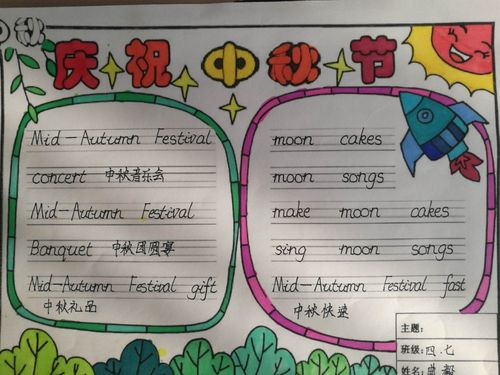 庆祝中秋节
Mid-Autumn Festival
concert 中秋音乐会
Mid-Autumn Festival
Banquet 中秋团圆宴
Mid-Autumn Festival gift
中秋礼品
moon cakes
moon songs
make moon cakes
sing moon songs
Mid-Autumn Festival fast
中秋快速
主题:
班级: 四.七
姓名: